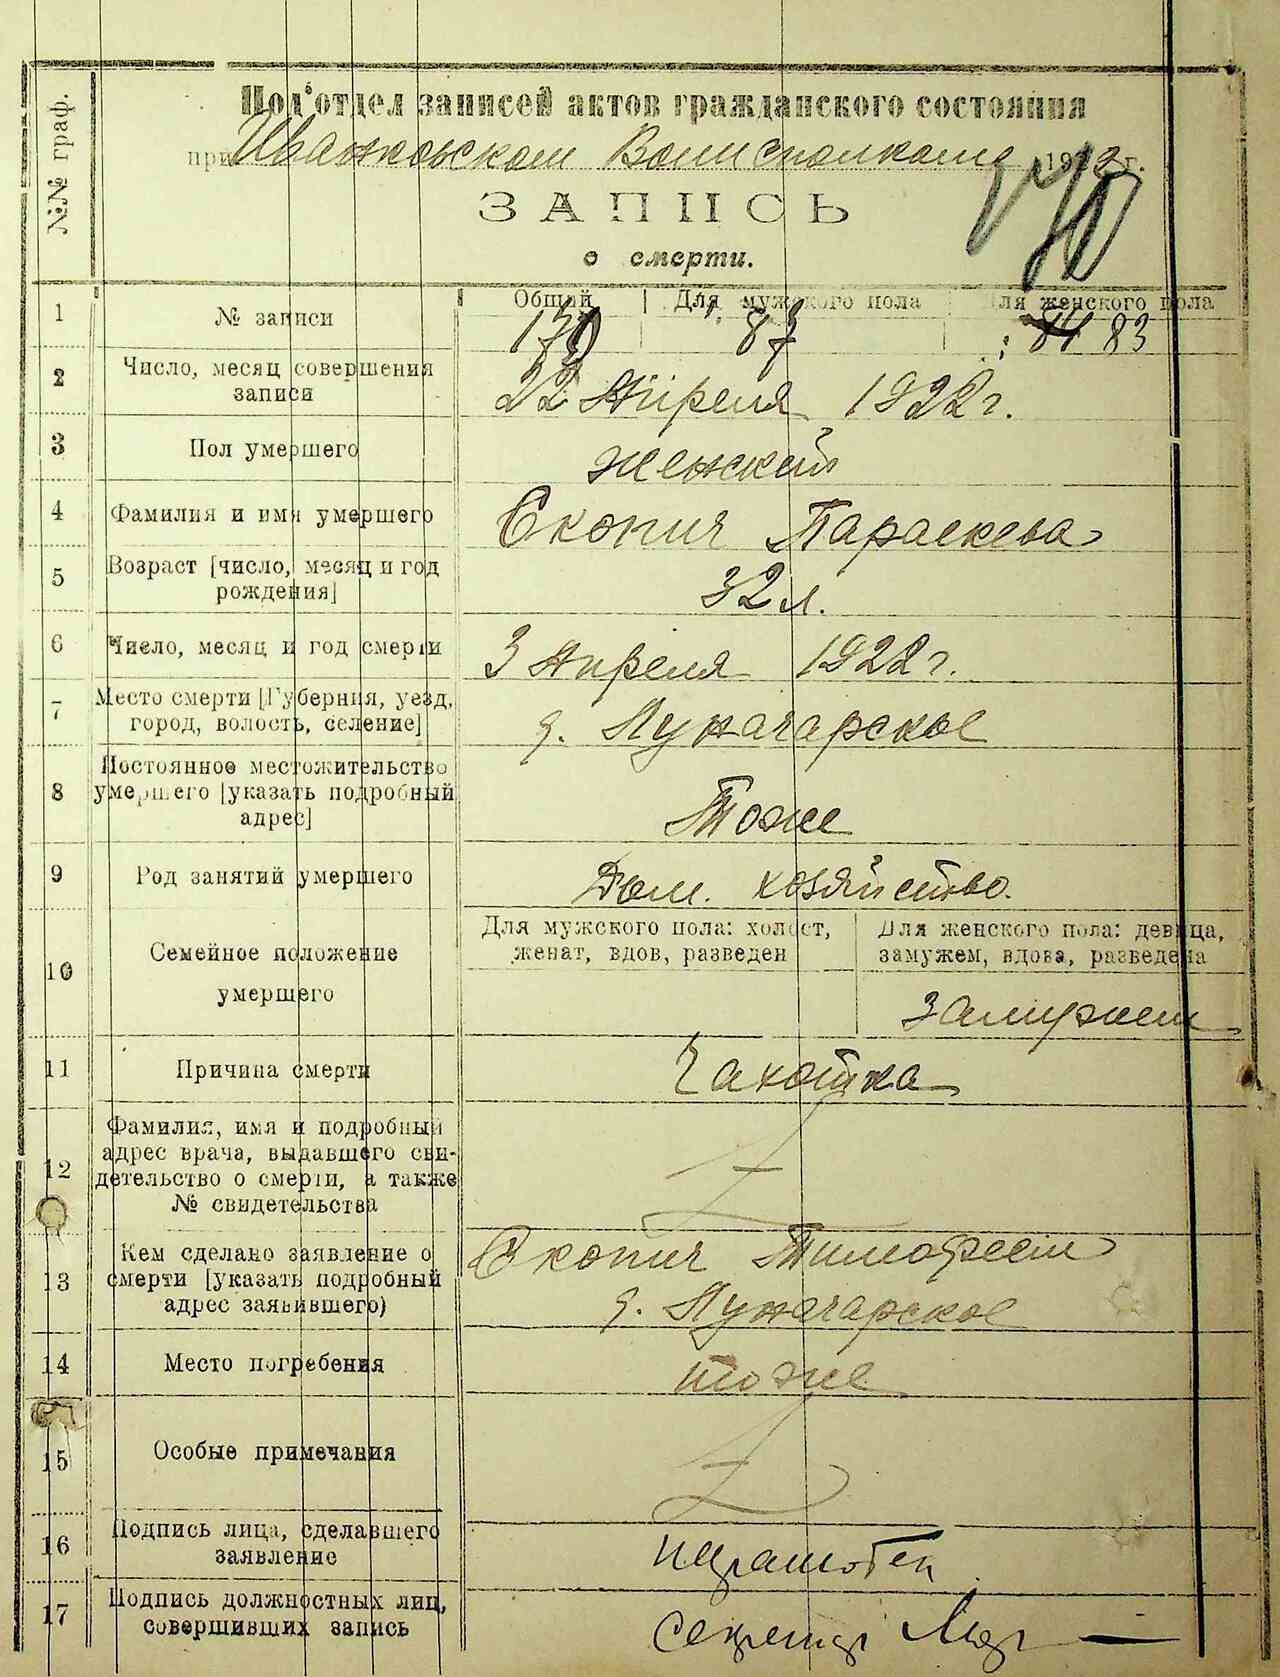 Подотдел записей актов гражданского состояния
при Иванковском Волисполкоме 1922 г.
170
ЗАПИСЬ
о смерти.
№№ граф.
1 № записи
Общий Для мужского пола Для женского пола
170 87 84 83
2 Число, месяц совершения
записи
22 Апреля 1922 г.
3 Пол умершего
женский
4 Фамилия и имя умершего
Скопич Параскева
5 Возраст [число, месяц и год
рождения]
32 л.
6 Число, месяц и год смерти
3 Апреля 1922 г.
7 Место смерти [Губерния, уезд,
город, волость, селение]
д. Луначарское
8 Постоянное местожительство
умершего [указать подробный
адрес]
Тоже
9 Род занятий умершего
Дом. хозяйство.
10 Семейное положение
умершего
Для мужского пола: холост,
женат, вдов, разведен
Для женского пола: девица,
замужем, вдова, разведена
замужем
11 Причина смерти
Чахотка
12 Фамилия, имя и подробный
адрес врача, выдавшего сви-
детельство о смерти, а также
№ свидетельства
13 Кем сделано заявление о
смерти [указать подробный
адрес заявившего)
Скопич Тимофеем
д. Луначарское
14 Место погребения
тоже
15 Особые примечания
16 Подпись лица, сделавшего
заявление
неграмотен
17 Подпись должностных лиц,
совершивших запись